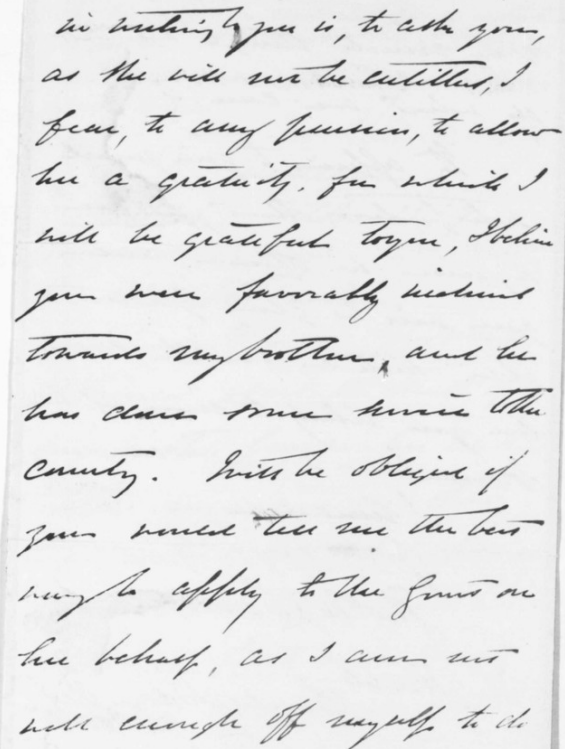 in writing to you is, to ask you,
as she will not be entitled, I
fear, to any pension, to allow
her a gratuity, for which I
will be grateful to you, I believe
you were favorably inclined
towards my brother, and he
has done some service to the
country. I will be obliged if
you would tell me the best
way to apply to the Govt on
her behalf, as I am not
well enough off myself to do